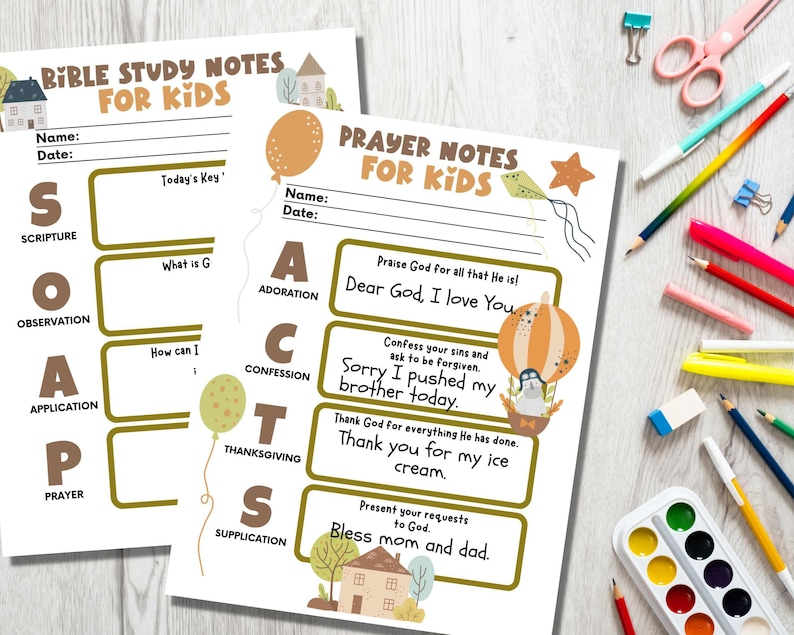 BIBLE STUDY NOTES
FOR KIDS
Name:
Date:
S
SCRIPTURE
Today's Key
O
OBSERVATION
What is G
A
APPLICATION
How can I
P
PRAYER
PRAYER NOTES
FOR KIDS
Name:
Date:
A
ADORATION
Praise God for all that He is!
Dear God, I love You.
C
CONFESSION
Confess your sins and
ask to be forgiven.
Sorry I pushed my
brother today.
T
THANKSGIVING
Thank God for everything He has done.
Thank you for my ice
cream.
S
SUPPLICATION
Present your requests
to God.
Bless mom and dad.